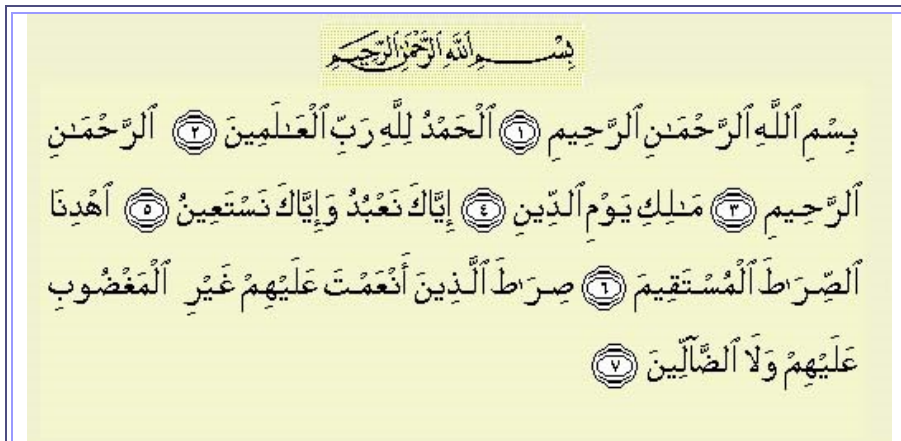 بِسْمِ اللَّهِ الرَّحْمَٰنِ الرَّحِيمِ
بِسْمِ ٱللَّهِ ٱلرَّحْمَـٰنِ ٱلرَّحِيمِ ١ ٱلْحَمْدُ لِلَّهِ رَبِّ ٱلْعَـٰلَمِينَ ٢ ٱلرَّحْمَـٰنِ
ٱلرَّحِيمِ ٣ مَـٰلِكِ يَوْمِ ٱلدِّينِ ٤ إِيَّاكَ نَعْبُدُ وَإِيَّاكَ نَسْتَعِينُ ٥ ٱهْدِنَا
ٱلصِّرَٰطَ ٱلْمُسْتَقِيمَ ٦ صِرَٰطَ ٱلَّذِينَ أَنْعَمْتَ عَلَيْهِمْ غَيْرِ ٱلْمَغْضُوبِ
عَلَيْهِمْ وَلَا ٱلضَّآلِّينَ ٧